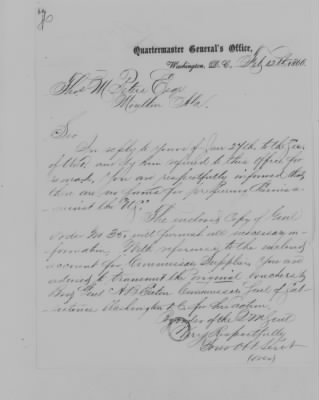 Quartermaster General's Office,
Washington, D.C. Feb 12th, 1866.
Thos M. Peters Esqr
Moulton Ala.
Sir
In reply to yours of Jan 27th to the
and by him referred to this Office for
you are respectfully informed that
there are no forms for preferring Claims
against the U.S.
The inclosed Copy of Genl
Order No 35, will furnish all necessary in-
formation. With reference to the enclosed
account for Commissary Supplies you are
advised to transmit the original vouchers to
Brig Genl A B Eaton Commissary Genl of Sub-
sistence Washington D.C. for his action.
By order of the Q M Genl
Very Respectfully
Your Obt Servt
(over)